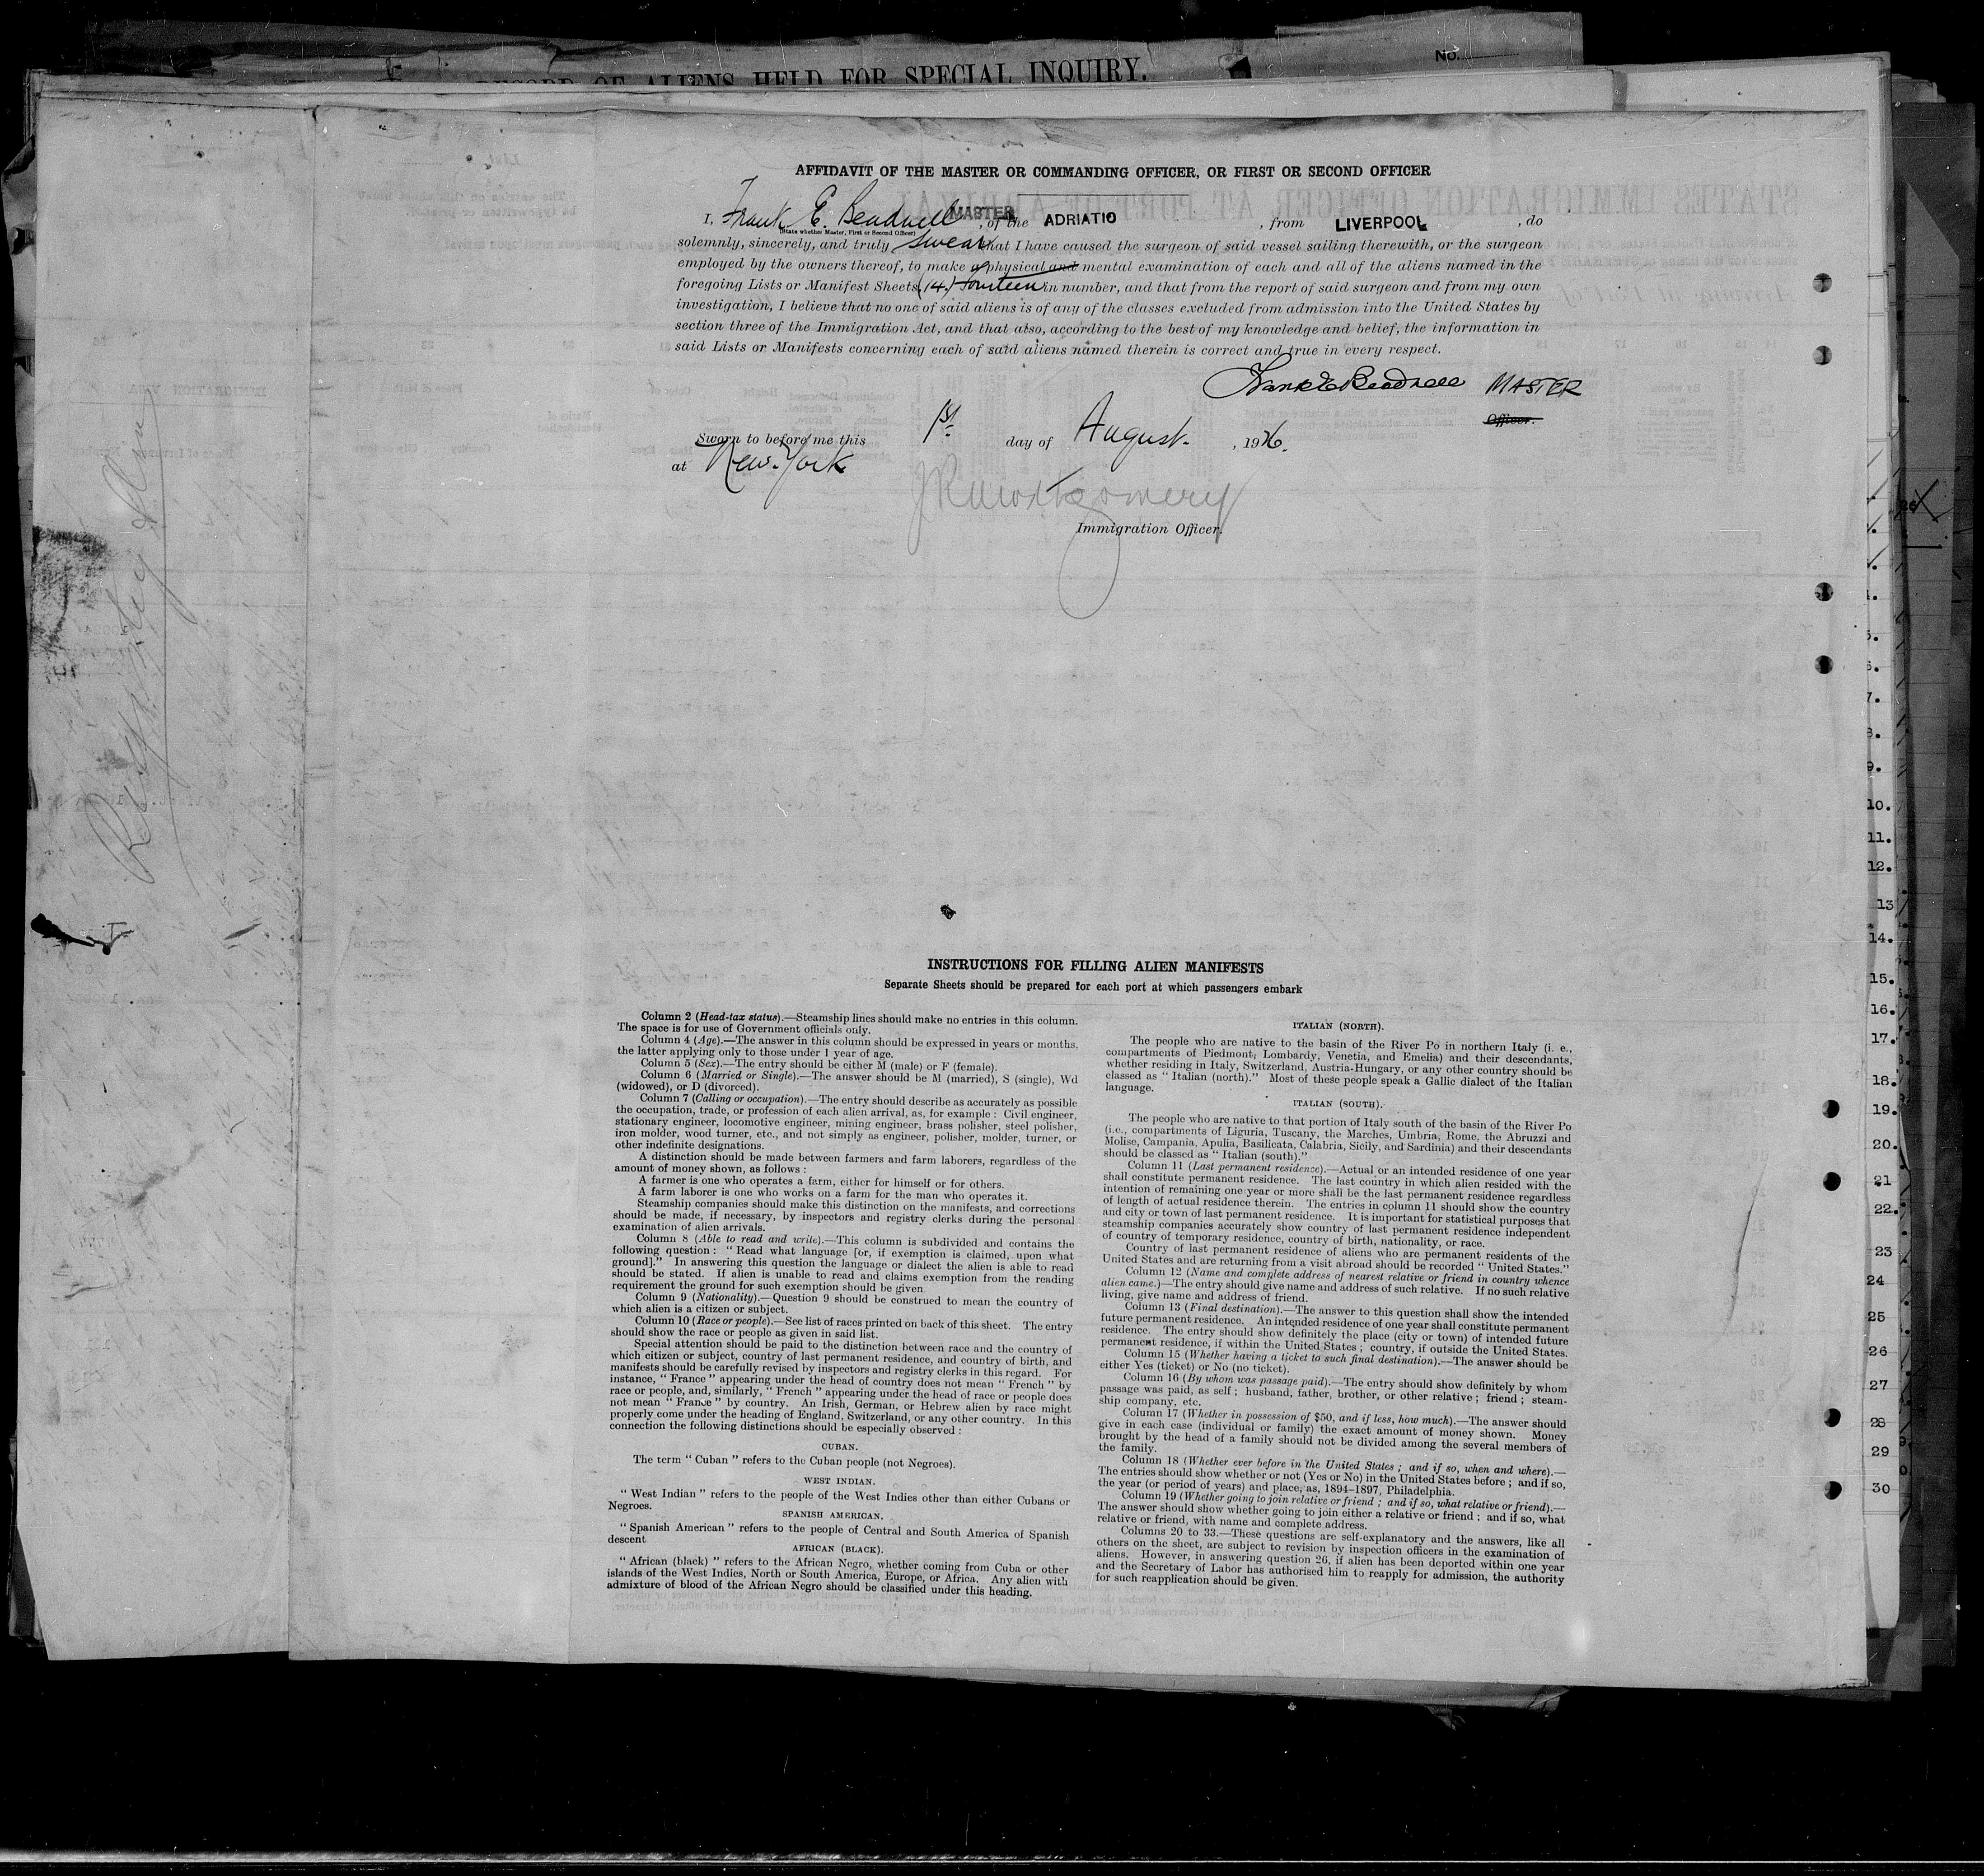 RECORD OF ALIENS HELD FOR SPECIAL INQUIRY.
No.
AFFIDAVIT OF THE MASTER OR COMMANDING OFFICER, OR FIRST OR SECOND OFFICER
I, Frank E. Beadnell MASTER, of the ADRIATIC, from LIVERPOOL, do
(State whether Master, First or Second Officer)
solemnly, sincerely, and truly swear that I have caused the surgeon of said vessel sailing therewith, or the surgeon
employed by the owners thereof, to make a physical and mental examination of each and all of the aliens named in the
foregoing Lists or Manifest Sheets, (14) fourteen in number, and that from the report of said surgeon and from my own
investigation, I believe that no one of said aliens is of any of the classes excluded from admission into the United States by
section three of the Immigration Act, and that also, according to the best of my knowledge and belief, the information in
said Lists or Manifests concerning each of said aliens named therein is correct and true in every respect.
Frank E Beadnell MASTER
Officer.
Sworn to before me this 1st. day of August. , 1926.
at New-York
J R Montgomery
Immigration Officer.
INSTRUCTIONS FOR FILLING ALIEN MANIFESTS
Separate Sheets should be prepared for each port at which passengers embark
Column 2 (Head-tax status).—Steamship lines should make no entries in this column.
The space is for use of Government officials only.
Column 4 (Age).—The answer in this column should be expressed in years or months,
the latter applying only to those under 1 year of age.
Column 5 (Sex).—The entry should be either M (male) or F (female).
Column 6 (Married or Single).—The answer should be M (married), S (single), Wd
(widowed), or D (divorced).
Column 7 (Calling or occupation).—The entry should describe as accurately as possible
the occupation, trade, or profession of each alien arrival, as, for example : Civil engineer,
stationary engineer, locomotive engineer, mining engineer, brass polisher, steel polisher,
iron molder, wood turner, etc., and not simply as engineer, polisher, molder, turner, or
other indefinite designations.
A distinction should be made between farmers and farm laborers, regardless of the
amount of money shown, as follows :
A farmer is one who operates a farm, either for himself or for others.
A farm laborer is one who works on a farm for the man who operates it.
Steamship companies should make this distinction on the manifests, and corrections
should be made, if necessary, by inspectors and registry clerks during the personal
examination of alien arrivals.
Column 8 (Able to read and write).—This column is subdivided and contains the
following question : " Read what language [or, if exemption is claimed, upon what
ground]." In answering this question the language or dialect the alien is able to read
should be stated. If alien is unable to read and claims exemption from the reading
requirement the ground for such exemption should be given.
Column 9 (Nationality).—Question 9 should be construed to mean the country of
which alien is a citizen or subject.
Column 10 (Race or people).—See list of races printed on back of this sheet. The entry
should show the race or people as given in said list.
Special attention should be paid to the distinction between race and the country of
which citizen or subject, country of last permanent residence, and country of birth, and
manifests should be carefully revised by inspectors and registry clerks in this regard. For
instance, " France " appearing under the head of country does not mean " French " by
race or people, and, similarly, " French " appearing under the head of race or people does
not mean " France " by country. An Irish, German, or Hebrew alien by race might
properly come under the heading of England, Switzerland, or any other country. In this
connection the following distinctions should be especially observed :
CUBAN.
The term " Cuban " refers to the Cuban people (not Negroes).
WEST INDIAN.
" West Indian " refers to the people of the West Indies other than either Cubans or
Negroes.
SPANISH AMERICAN.
" Spanish American " refers to the people of Central and South America of Spanish
descent
AFRICAN (BLACK).
" African (black) " refers to the African Negro, whether coming from Cuba or other
islands of the West Indies, North or South America, Europe, or Africa. Any alien with
admixture of blood of the African Negro should be classified under this heading.
ITALIAN (NORTH).
The people who are native to the basin of the River Po in northern Italy (i. e.,
compartments of Piedmont, Lombardy, Venetia, and Emelia) and their descendants,
whether residing in Italy, Switzerland, Austria-Hungary, or any other country should be
classed as " Italian (north)." Most of these people speak a Gallic dialect of the Italian
language.
ITALIAN (SOUTH).
The people who are native to that portion of Italy south of the basin of the River Po
(i.e., compartments of Liguria, Tuscany, the Marches, Umbria, Rome, the Abruzzi and
Molise, Campania, Apulia, Basilicata, Calabria, Sicily, and Sardinia) and their descendants
should be classed as " Italian (south)."
Column 11 (Last permanent residence).—Actual or an intended residence of one year
shall constitute permanent residence. The last country in which alien resided with the
intention of remaining one year or more shall be the last permanent residence regardless
of length of actual residence therein. The entries in column 11 should show the country
and city or town of last permanent residence. It is important for statistical purposes that
steamship companies accurately show country of last permanent residence independent
of country of temporary residence, country of birth, nationality, or race.
Country of last permanent residence of aliens who are permanent residents of the
United States and are returning from a visit abroad should be recorded " United States."
Column 12 (Name and complete address of nearest relative or friend in country whence
alien came.)—The entry should give name and address of such relative. If no such relative
living, give name and address of friend.
Column 13 (Final destination).—The answer to this question shall show the intended
future permanent residence. An intended residence of one year shall constitute permanent
residence. The entry should show definitely the place (city or town) of intended future
permanent residence, if within the United States ; country, if outside the United States.
Column 15 (Whether having a ticket to such final destination).—The answer should be
either Yes (ticket) or No (no ticket).
Column 16 (By whom was passage paid).—The entry should show definitely by whom
passage was paid, as self ; husband, father, brother, or other relative ; friend ; steam-
ship company, etc.
Column 17 (Whether in possession of $50, and if less, how much).—The answer should
give in each case (individual or family) the exact amount of money shown. Money
brought by the head of a family should not be divided among the several members of
the family.
Column 18 (Whether ever before in the United States ; and if so, when and where).—
The entries should show whether or not (Yes or No) in the United States before ; and if so,
the year (or period of years) and place, as, 1894–1897, Philadelphia.
Column 19 (Whether going to join relative or friend ; and if so, what relative or friend).—
The answer should show whether going to join either a relative or friend ; and if so, what
relative or friend, with name and complete address.
Columns 20 to 33.—These questions are self-explanatory and the answers, like all
others on the sheet, are subject to revision by inspection officers in the examination of
aliens. However, in answering question 26, if alien has been deported within one year
and the Secretary of Labor has authorised him to reapply for admission, the authority
for such reapplication should be given.
7.
8.
9.
10.
11.
12.
13
14.
15.
16.
17.
18.
19.
20.
21
22.
23
24
25
26
27
28
29
30